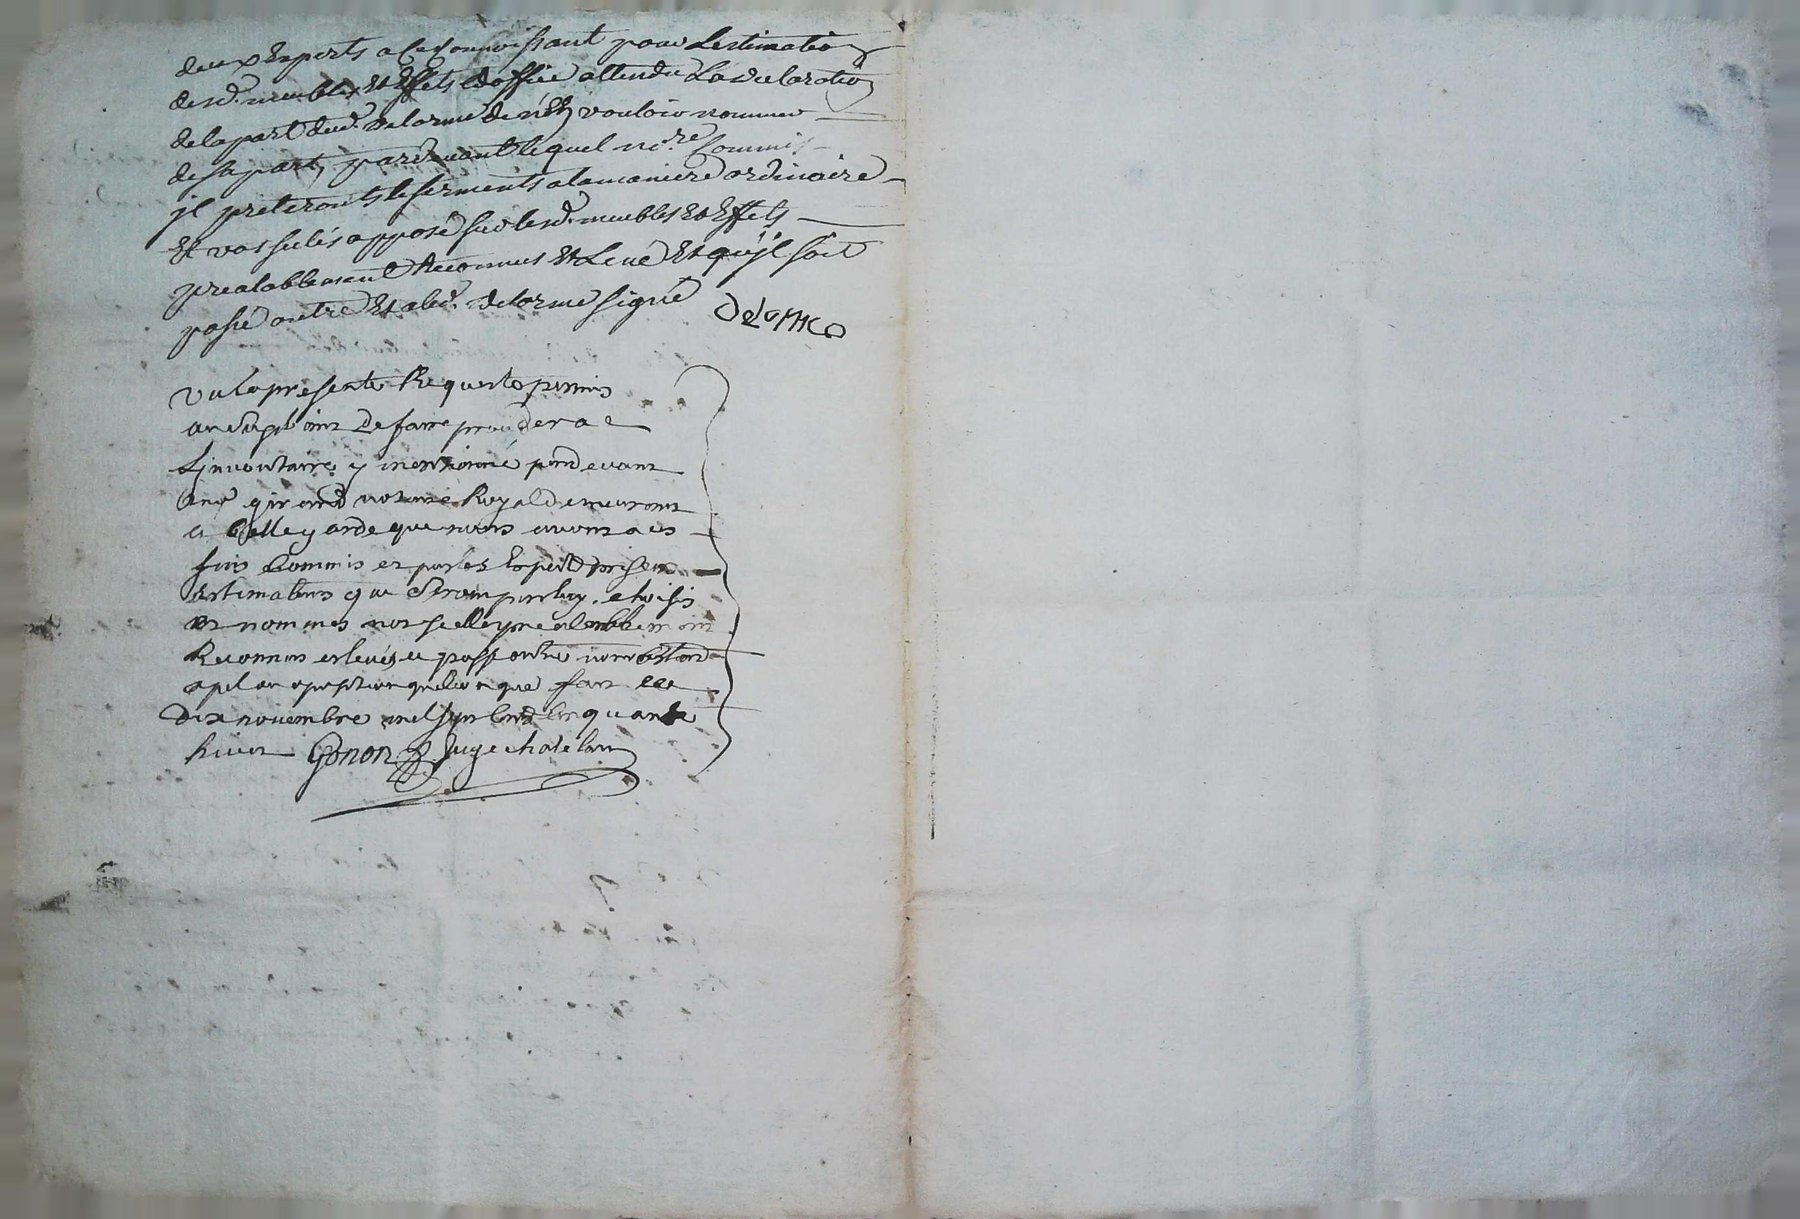 deux Experts a ce Connoissant pour Lestimation
desd. meubles Et Effets doffice attendu La declaration
de la part dud. Delorme de n'En vouloir nommer
de sa part, pardevant lequel no.re Commis
jl preteronts le serments a la maniere ordinaire
Et vos selés apposé sur lesd. meubles Et Effets
prealablement Reconnus Et Levé Et qu'jl soit
passé outre Et a led. Delorme signé Delorme
Vu la presente Requeste permis
au Supliant De faire proceder a
Linventaire y mentionné pardevant
girard notaire Royal demeurant
a bellegarde que nous avons a ces
fins Commis et par les Expert priseur
Estimateurs qui Seront par luy choisis
et nommes nos scelle prealablement
Reconnus et levés et passe outre nonobstant
apel ou oposition quelconque fait ce
Dix novembre mil sept Cent Cinquante
huict Gonon Juge chatelain